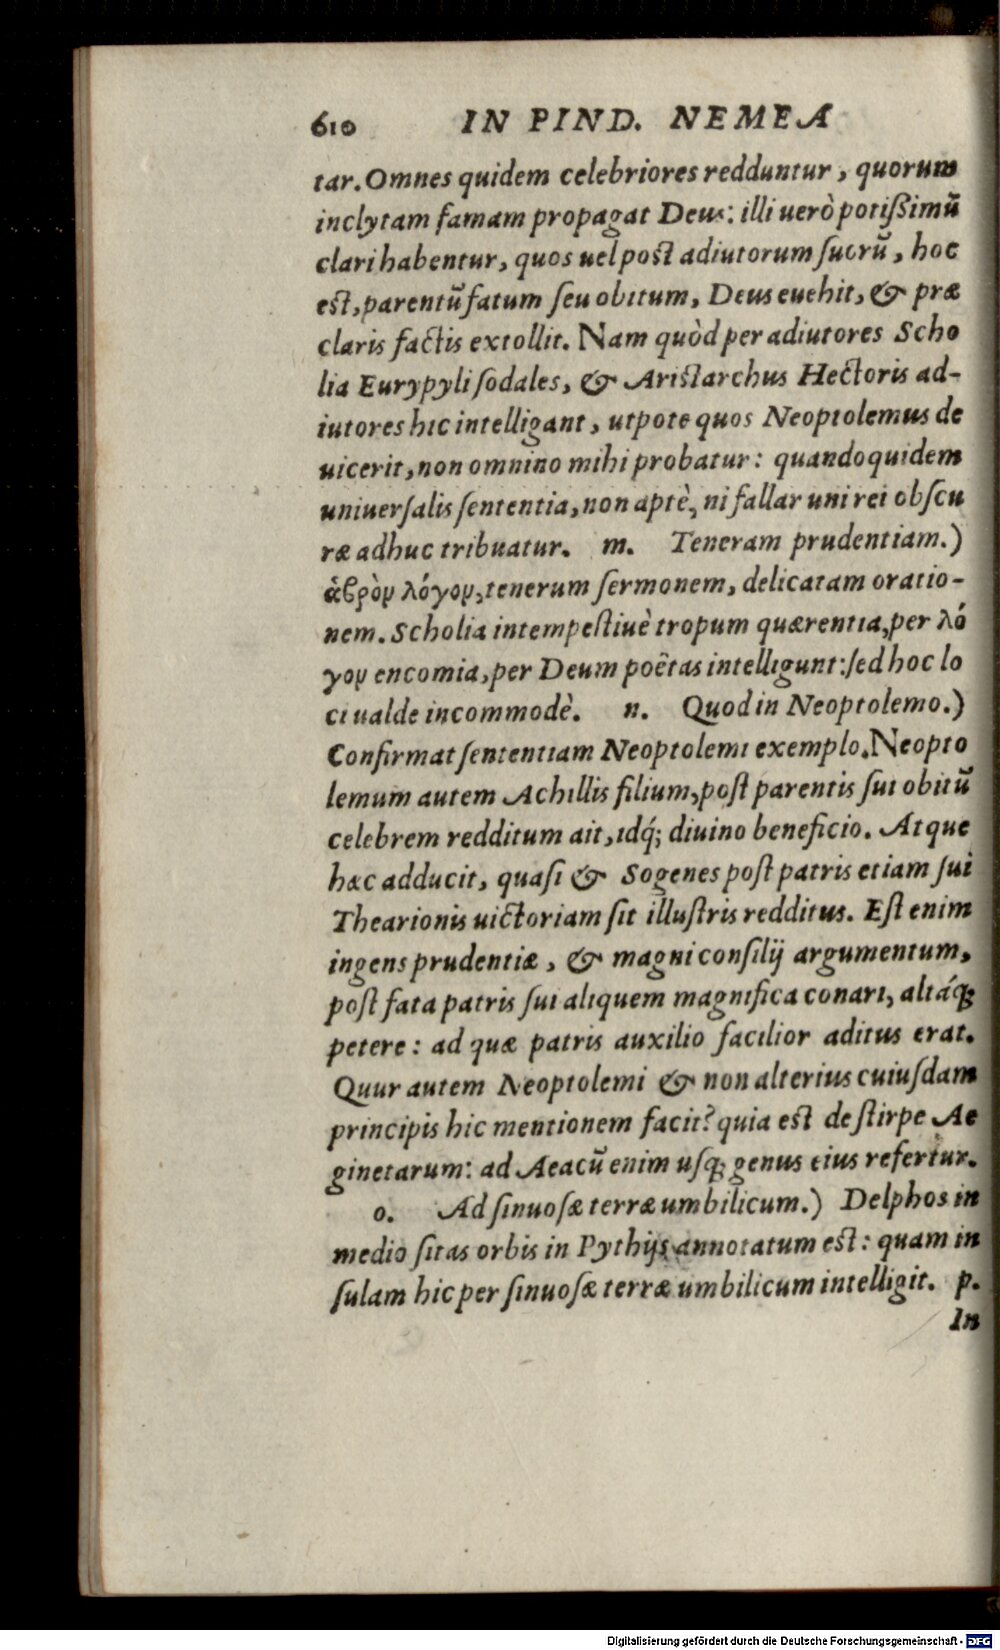 610 IN PIND. NEMEA
tar. Omnes quidem celebriores redduntur, quorum
inclytam famam propagat Deus: illi uerò potißimũ
clari habentur, quos uel post adiutorum suorũ, hoc
est, parentũ fatum seu obitum, Deus euehit, & præ
claris factis extollit. Nam quòd per adiutores Scho
lia Eurypyli sodales, & Aristarchus Hectoris ad-
iutores hic intelligant, utpote quos Neoptolemus de
uicerit, non omnino mihi probatur: quandoquidem
uniuersalis sententia, non aptè, ni fallar uni rei obscu
ræ adhuc tribuatur. m. Teneram prudentiam.)
ἁβρὸν λόγον, tenerum sermonem, delicatam oratio-
nem. Scholia intempestiuè tropum quærentia, per λό
γον encomia, per Deum poêtas intelligunt: sed hoc lo
ci ualde incommodè. n. Quod in Neoptolemo.)
Confirmat sententiam Neoptolemi exemplo. Neopto
lemum autem Achillis filium, post parentis sui obitũ
celebrem redditum ait, idq́; diuino beneficio. Atque
hæc adducit, quasi & Sogenes post patris etiam sui
Thearionis uictoriam sit illustris redditus. Est enim
ingens prudentiæ, & magni consilij argumentum,
post fata patris sui aliquem magnifica conari, altáq;
petere: ad quæ patris auxilio facilior aditus erat.
Quur autem Neoptolemi & non alterius cuiusdam
principis hic mentionem facit? quia est de stirpe Ae
ginetarum: ad Aeacũ enim usq; genus eius refertur.
o. Ad sinuosæ terræ umbilicum.) Delphos in
medio sitas orbis in Pythijs annotatum est: quam in
sulam hic per sinuosæ terræ umbilicum intelligit. p.
In
Digitalisierung gefördert durch die Deutsche Forschungsgemeinschaft - DFG